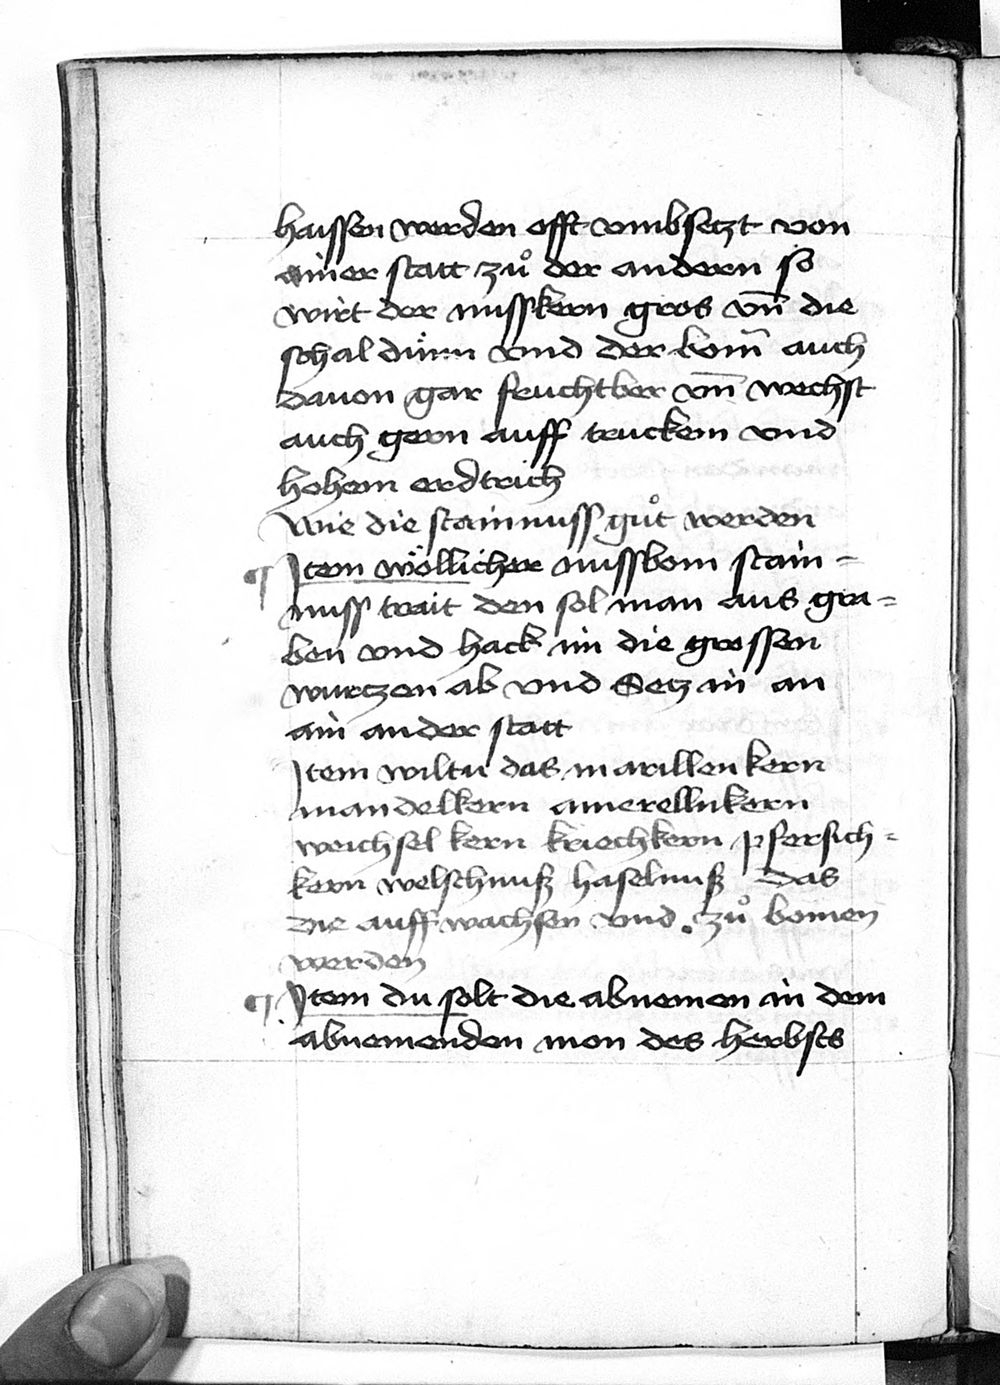 haissen werden offt vmbsetzt von
ainer statt zuͦ der andern so
wirt der nusskern gros vn̄ die
schal dünn vnd der bom̄ auch
dauon gar fruchtber vn̄ wechst
auch gern auff truckem vnd
hohem erdtrich
Wie die stainnuss guͦt werden
¶ Jtem wöllicher nussbom stain=
nuss trait den sol man aus gra=
ben vnd hack im die grossen
wurtzen ab vnd Setz in an
ain ander statt
Jtem wiltu das marillen kern
mandelkern amerellnkern
weichsel kern kriechkern pfersich=
kern welschnuß haselnuß das
die auff wachsen vnd . zuͦ bomen
werden
¶ Jtem du solt die abnemen in dem
abnemenden mon des herbsts